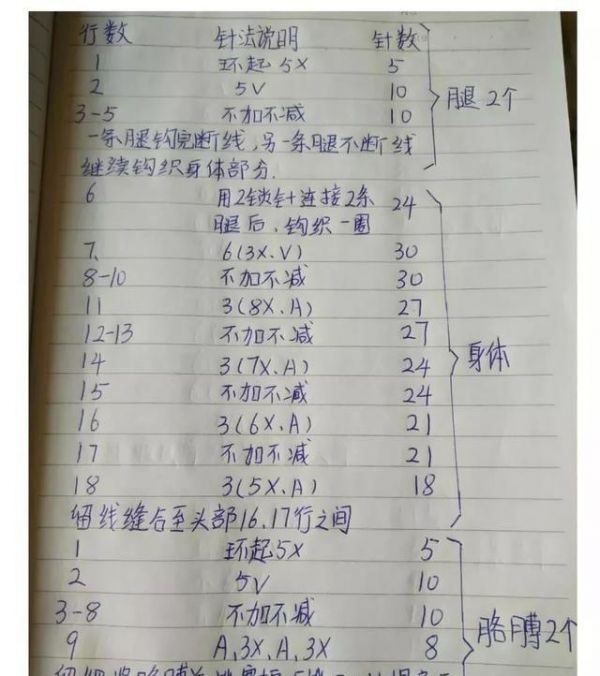 行数 针法说明 针数
1 环起5X 5
2 5V 10
3-5 不加不减 10
腿2个
一条腿钩完断线,另一条腿不断线
继续钩织身体部分.
6 用2锁针连接2条 24
腿后、钩织一圈
7、 6(3X.V) 30
8-10 不加不减 30
11 3(8X.A) 27
12-13 不加不减 27
14 3(7X.A) 24
身体
15 不加不减 24
16 3(6X.A) 21
17 不加不减 21
18 3(5X.A) 18
留线缝合至头部16.17行之间
1 环起5X 5
2 5V 10
3-8 不加不减 10
胳膊2个
9 A,3X,A,3X 8